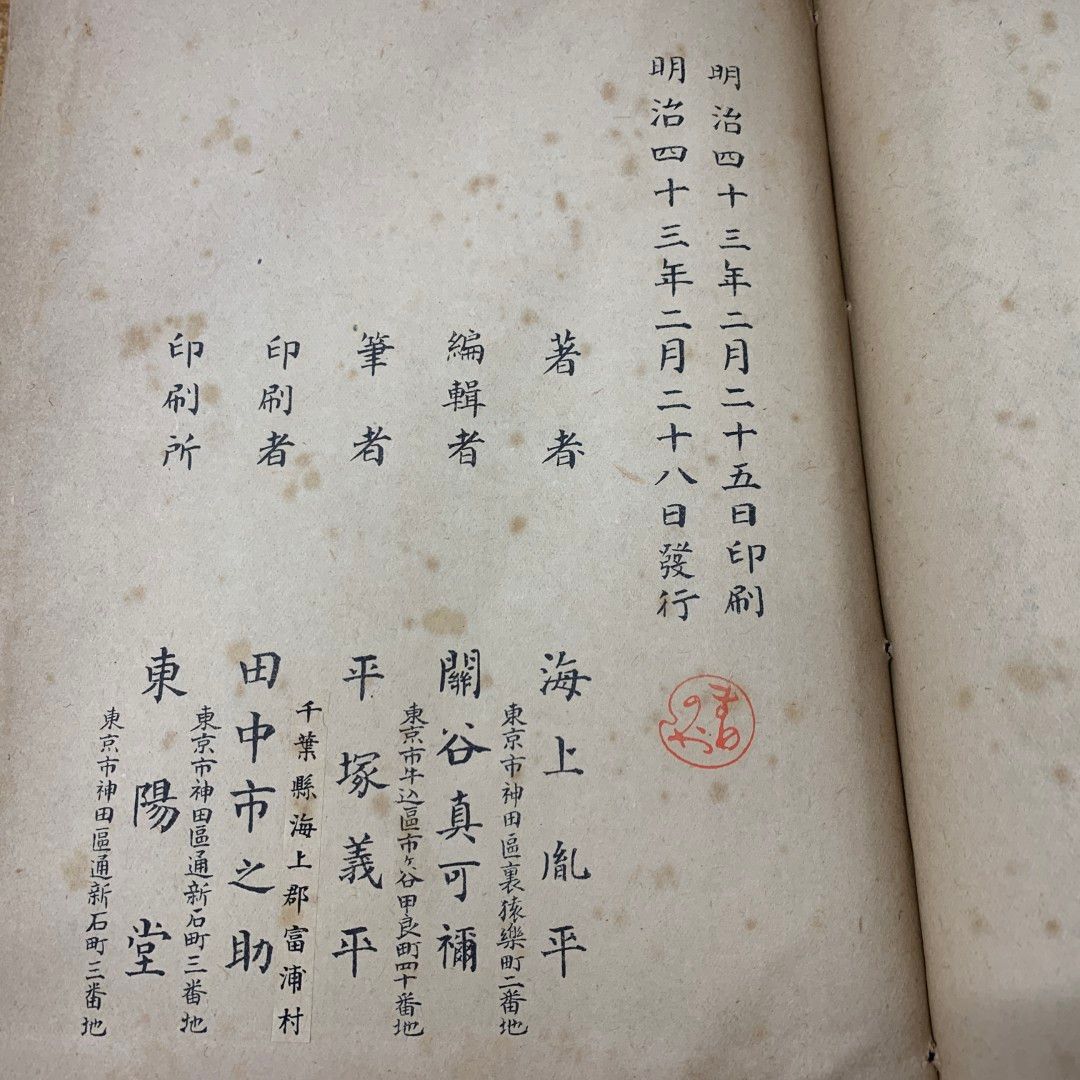 明治四十三年二月二十五日印刷
明治四十三年二月二十八日發行
著者
海上胤平
東京市神田區裏猿樂町二番地
編輯者
關谷真可禰
東京市牛込區市ヶ谷甲良町四十番地
筆者
平塚義平
千葉縣海上郡富浦村
印刷者
田中市之助
東京市神田區通新石町三番地
印刷所
東陽堂
東京市神田區通新石町三番地